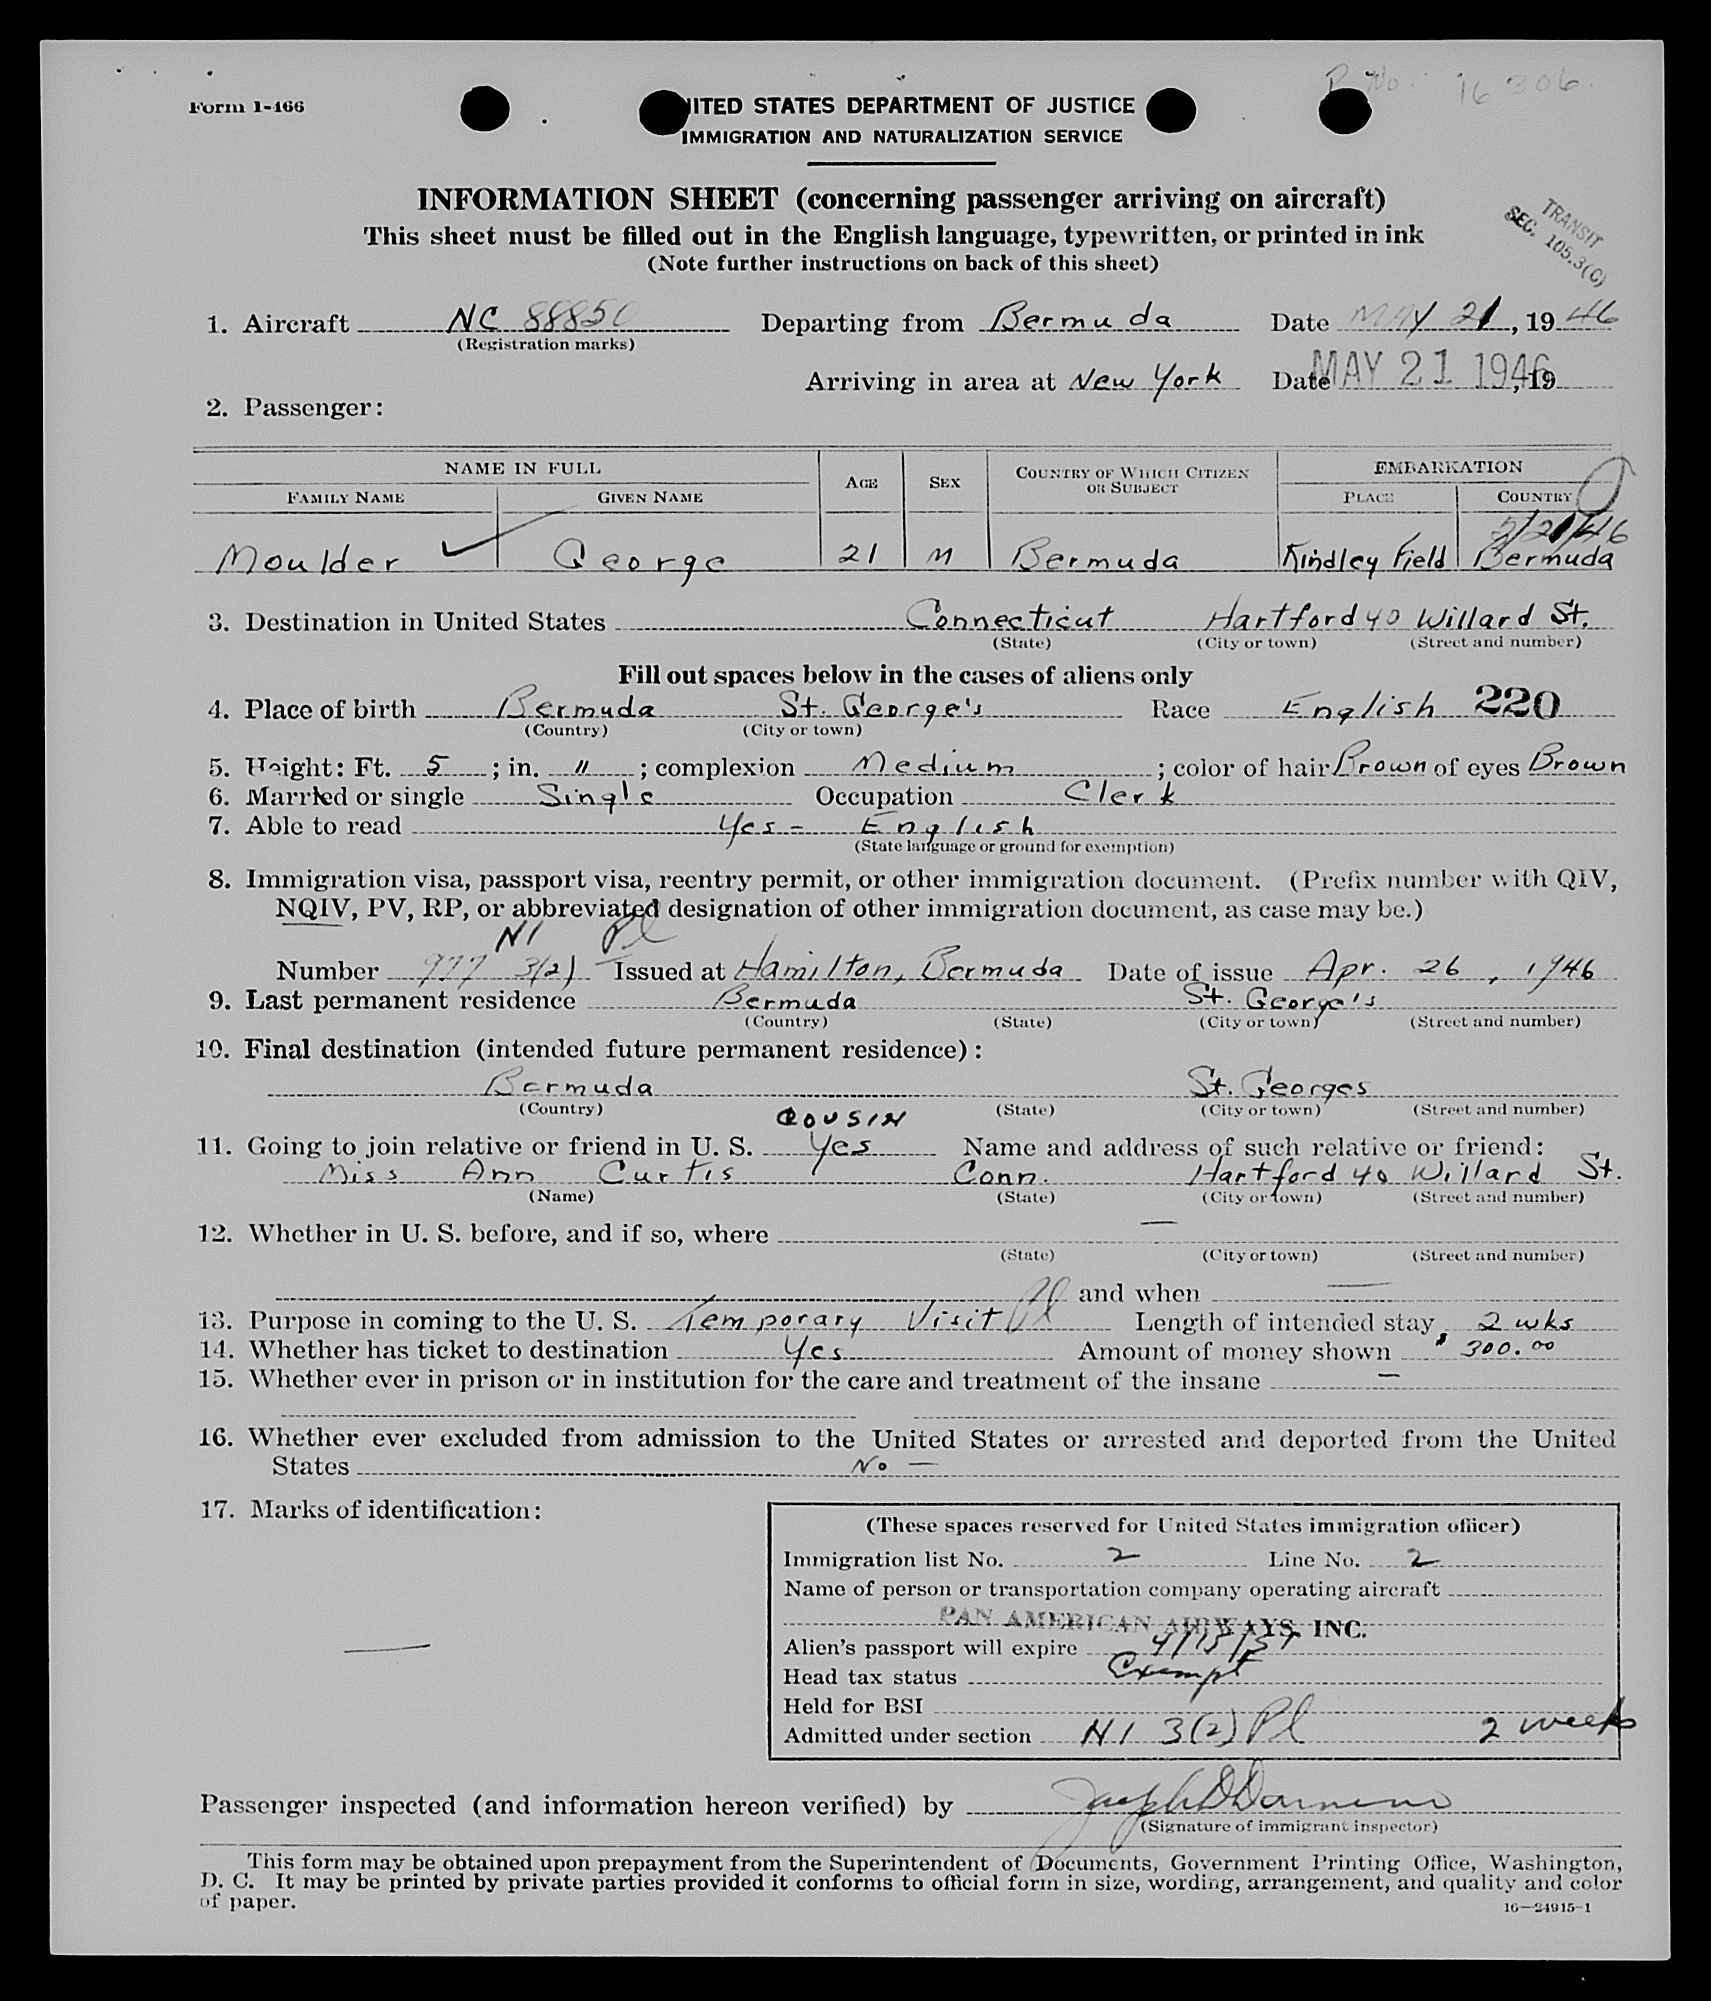 P No. 16306.
Form I-466
UNITED STATES DEPARTMENT OF JUSTICE
IMMIGRATION AND NATURALIZATION SERVICE
INFORMATION SHEET (concerning passenger arriving on aircraft)
TRANSIT
SEC. 105.3(C)
This sheet must be filled out in the English language, typewritten, or printed in ink
(Note further instructions on back of this sheet)
1. Aircraft NC 88850 Departing from Bermuda Date MAY 21, 1946
(Registration marks)
Arriving in area at New York Date MAY 21 1946, 19
2. Passenger:
NAME IN FULL AGE SEX COUNTRY OF WHICH CITIZEN OR SUBJECT EMBARKATION
FAMILY NAME GIVEN NAME PLACE COUNTRY
5/21/46
Moulder George 21 M Bermuda Kindley Field Bermuda
3. Destination in United States Connecticut Hartford 40 Willard St.
(State) (City or town) (Street and number)
Fill out spaces below in the cases of aliens only
4. Place of birth Bermuda St. George's Race English 220
(Country) (City or town)
5. Height: Ft. 5 ; in. " ; complexion Medium ; color of hair Brown of eyes Brown
6. Married or single Single Occupation Clerk
7. Able to read Yes - English
(State language or ground for exemption)
8. Immigration visa, passport visa, reentry permit, or other immigration document. (Prefix number with QIV,
NQIV, PV, RP, or abbreviated designation of other immigration document, as case may be.)
NI Pl
Number 977 3(2) Issued at Hamilton, Bermuda Date of issue Apr. 26, 1946
9. Last permanent residence Bermuda St. George's
(Country) (State) (City or town) (Street and number)
10. Final destination (intended future permanent residence):
Bermuda St. Georges
(Country) (State) (City or town) (Street and number)
COUSIN
11. Going to join relative or friend in U. S. Yes Name and address of such relative or friend:
Miss Ann Curtis Conn. Hartford 40 Willard St.
(Name) (State) (City or town) (Street and number)
12. Whether in U. S. before, and if so, where —
(State) (City or town) (Street and number)
and when —
13. Purpose in coming to the U. S. Temporary Visit Pl Length of intended stay 2 wks
14. Whether has ticket to destination Yes Amount of money shown $ 300.00
15. Whether ever in prison or in institution for the care and treatment of the insane —
16. Whether ever excluded from admission to the United States or arrested and deported from the United
States No —
17. Marks of identification:
—
(These spaces reserved for United States immigration officer)
Immigration list No. 2 Line No. 2
Name of person or transportation company operating aircraft
PAN AMERICAN AIRWAYS, INC.
Alien's passport will expire 4/15/51
Head tax status Exempt
Held for BSI
Admitted under section NI 3(2) Pl 2 weeks
Passenger inspected (and information hereon verified) by
(Signature of immigrant inspector)
This form may be obtained upon prepayment from the Superintendent of Documents, Government Printing Office, Washington,
D. C. It may be printed by private parties provided it conforms to official form in size, wording, arrangement, and quality and color
of paper.
16—24915-1